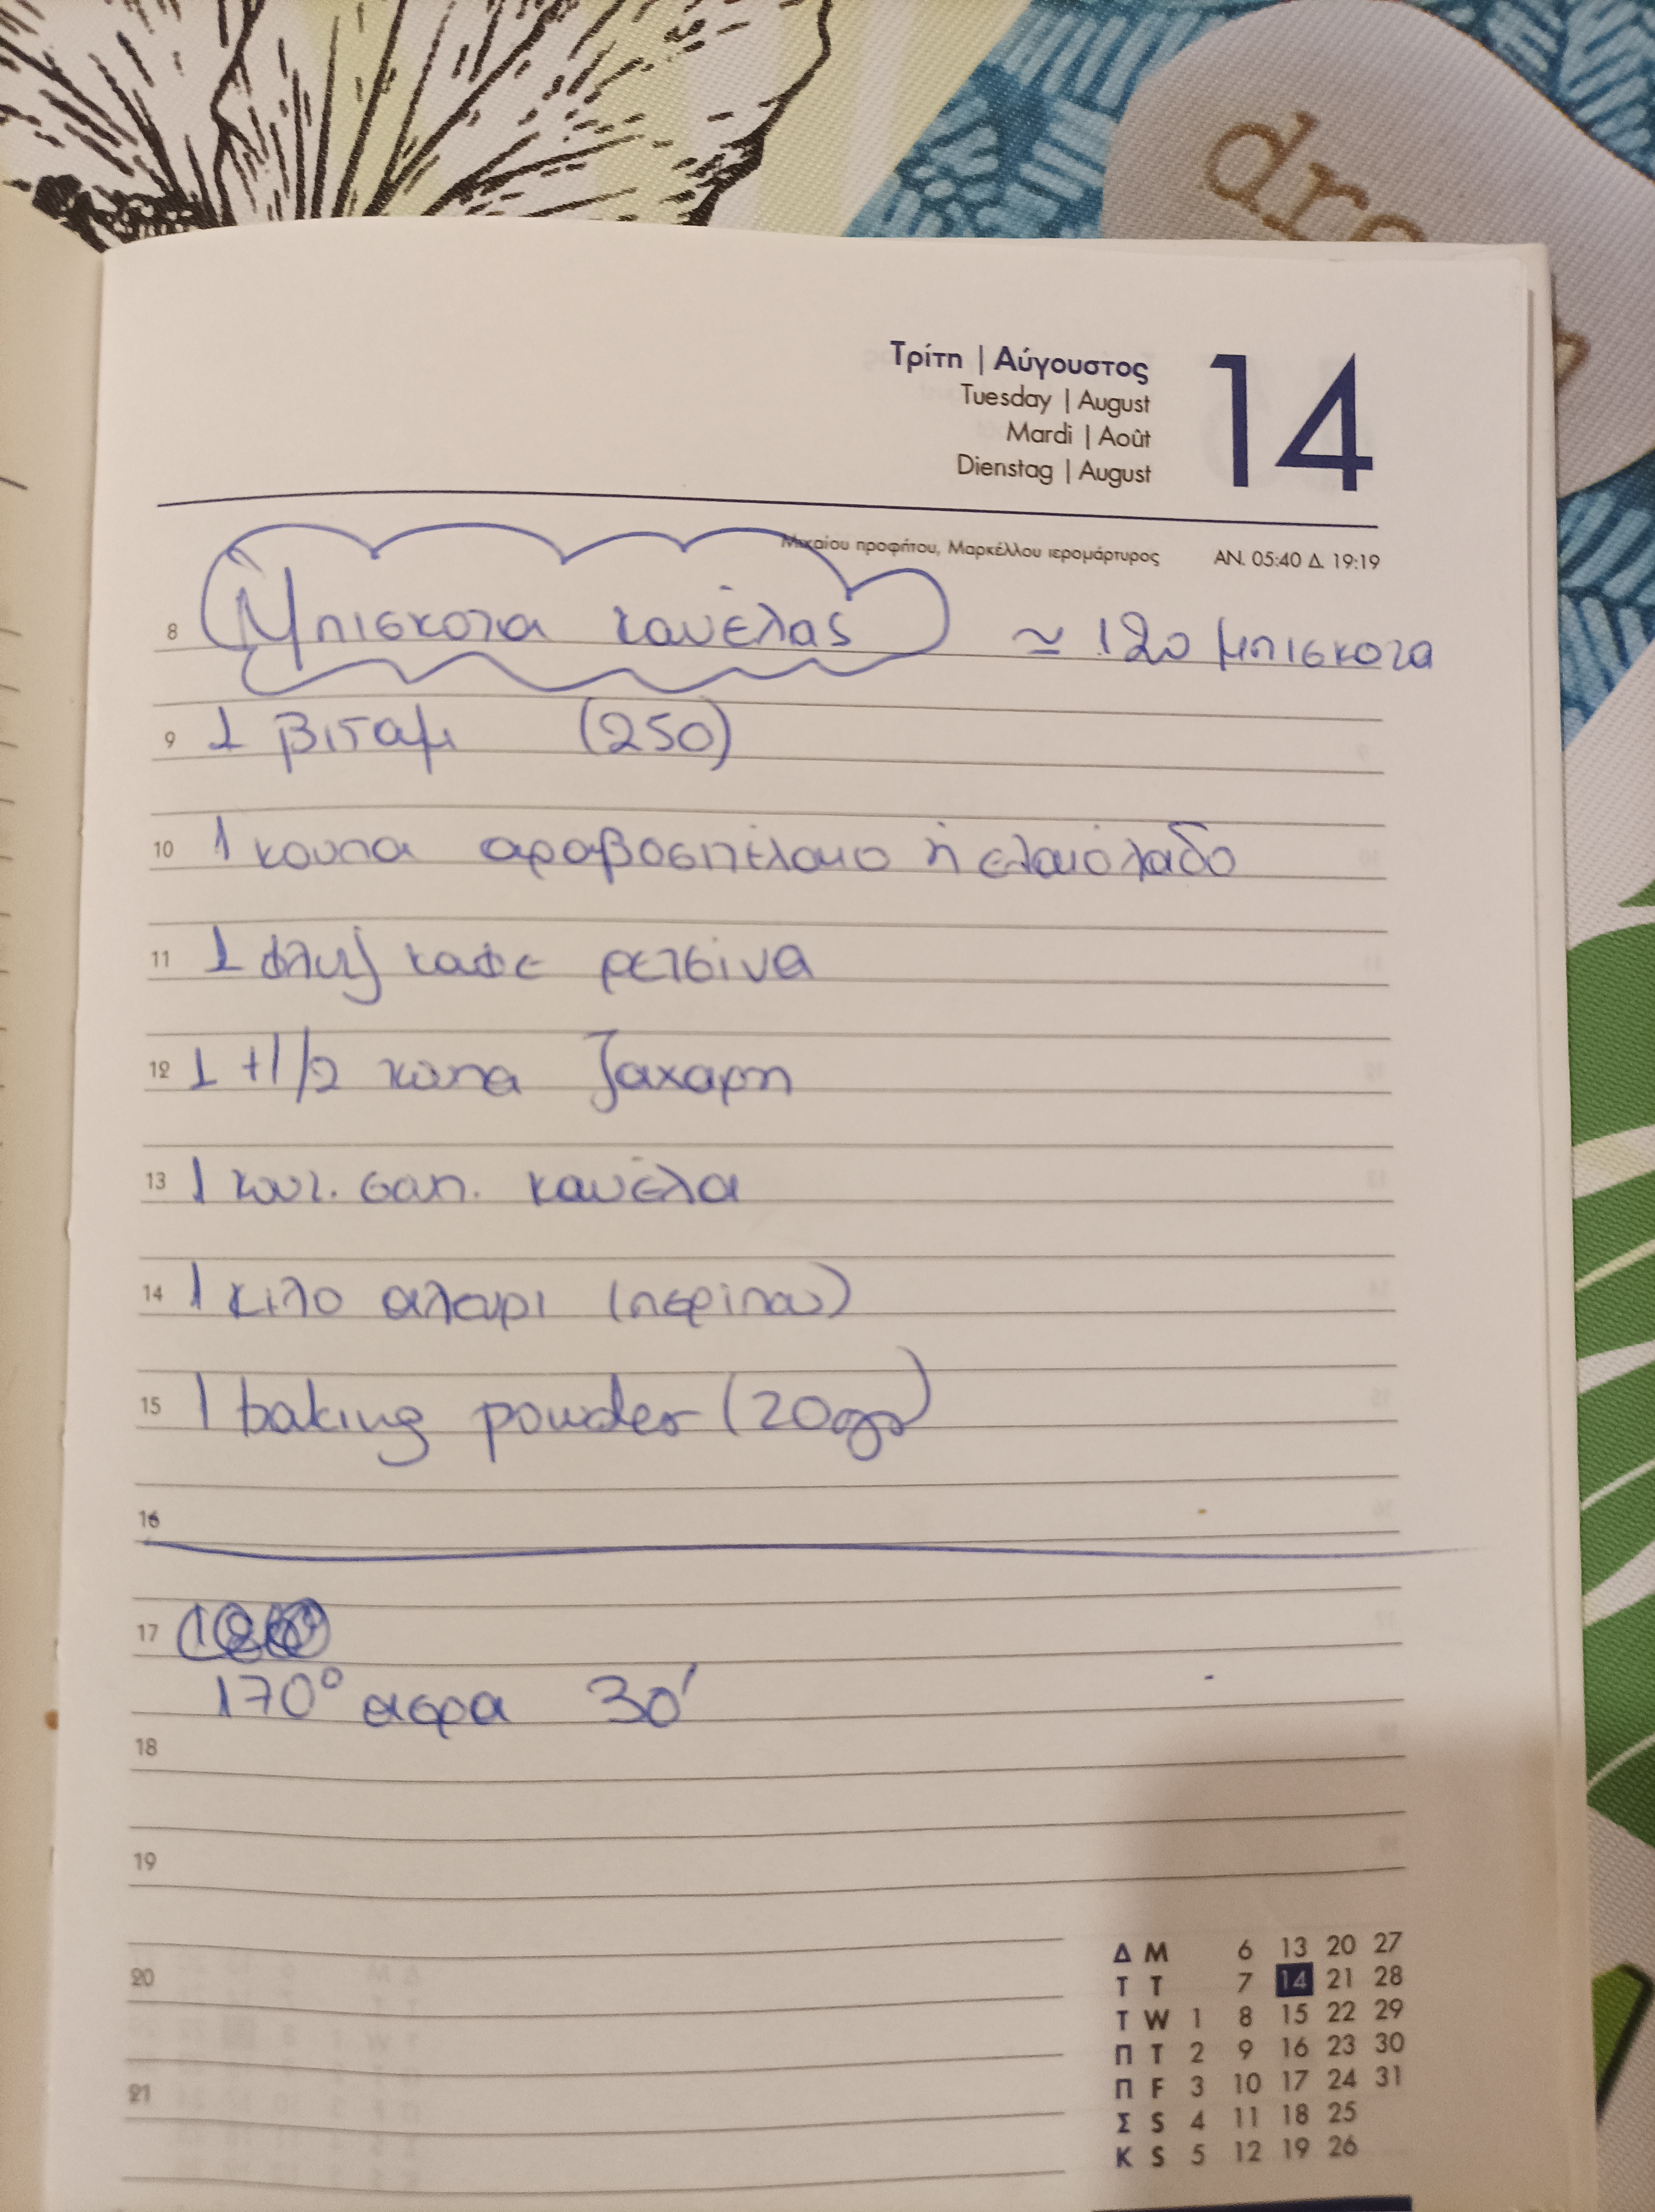 dre
Τρίτη | Αύγουστος 14
Tuesday | August
Mardi | Août
Dienstag | August
Μιχαίου προφήτου, Μαρκέλλου ιερομάρτυρος ΑΝ. 05:40 Δ. 19:19
8 Μπισκοτα κανέλας ≃ 120 μπισκοτα
9 1 βιταμ (250)
10 1 κουπα αραβοσιτέλαιο ή ελαιόλαδο
11 1 φλυτζ καφε ρετσίνα
12 1 + 1/2 κουπα ζαχαρη
13 1 κουτ. σουπ. κανέλα
14 1 κιλο αλευρι (περίπου)
15 1 baking powder (20gr)
16
17
170° αερα 30'
18
19
20
21
Δ M 6 13 20 27
Τ T 7 14 21 28
Τ W 1 8 15 22 29
Π T 2 9 16 23 30
Π F 3 10 17 24 31
Σ S 4 11 18 25
Κ S 5 12 19 26